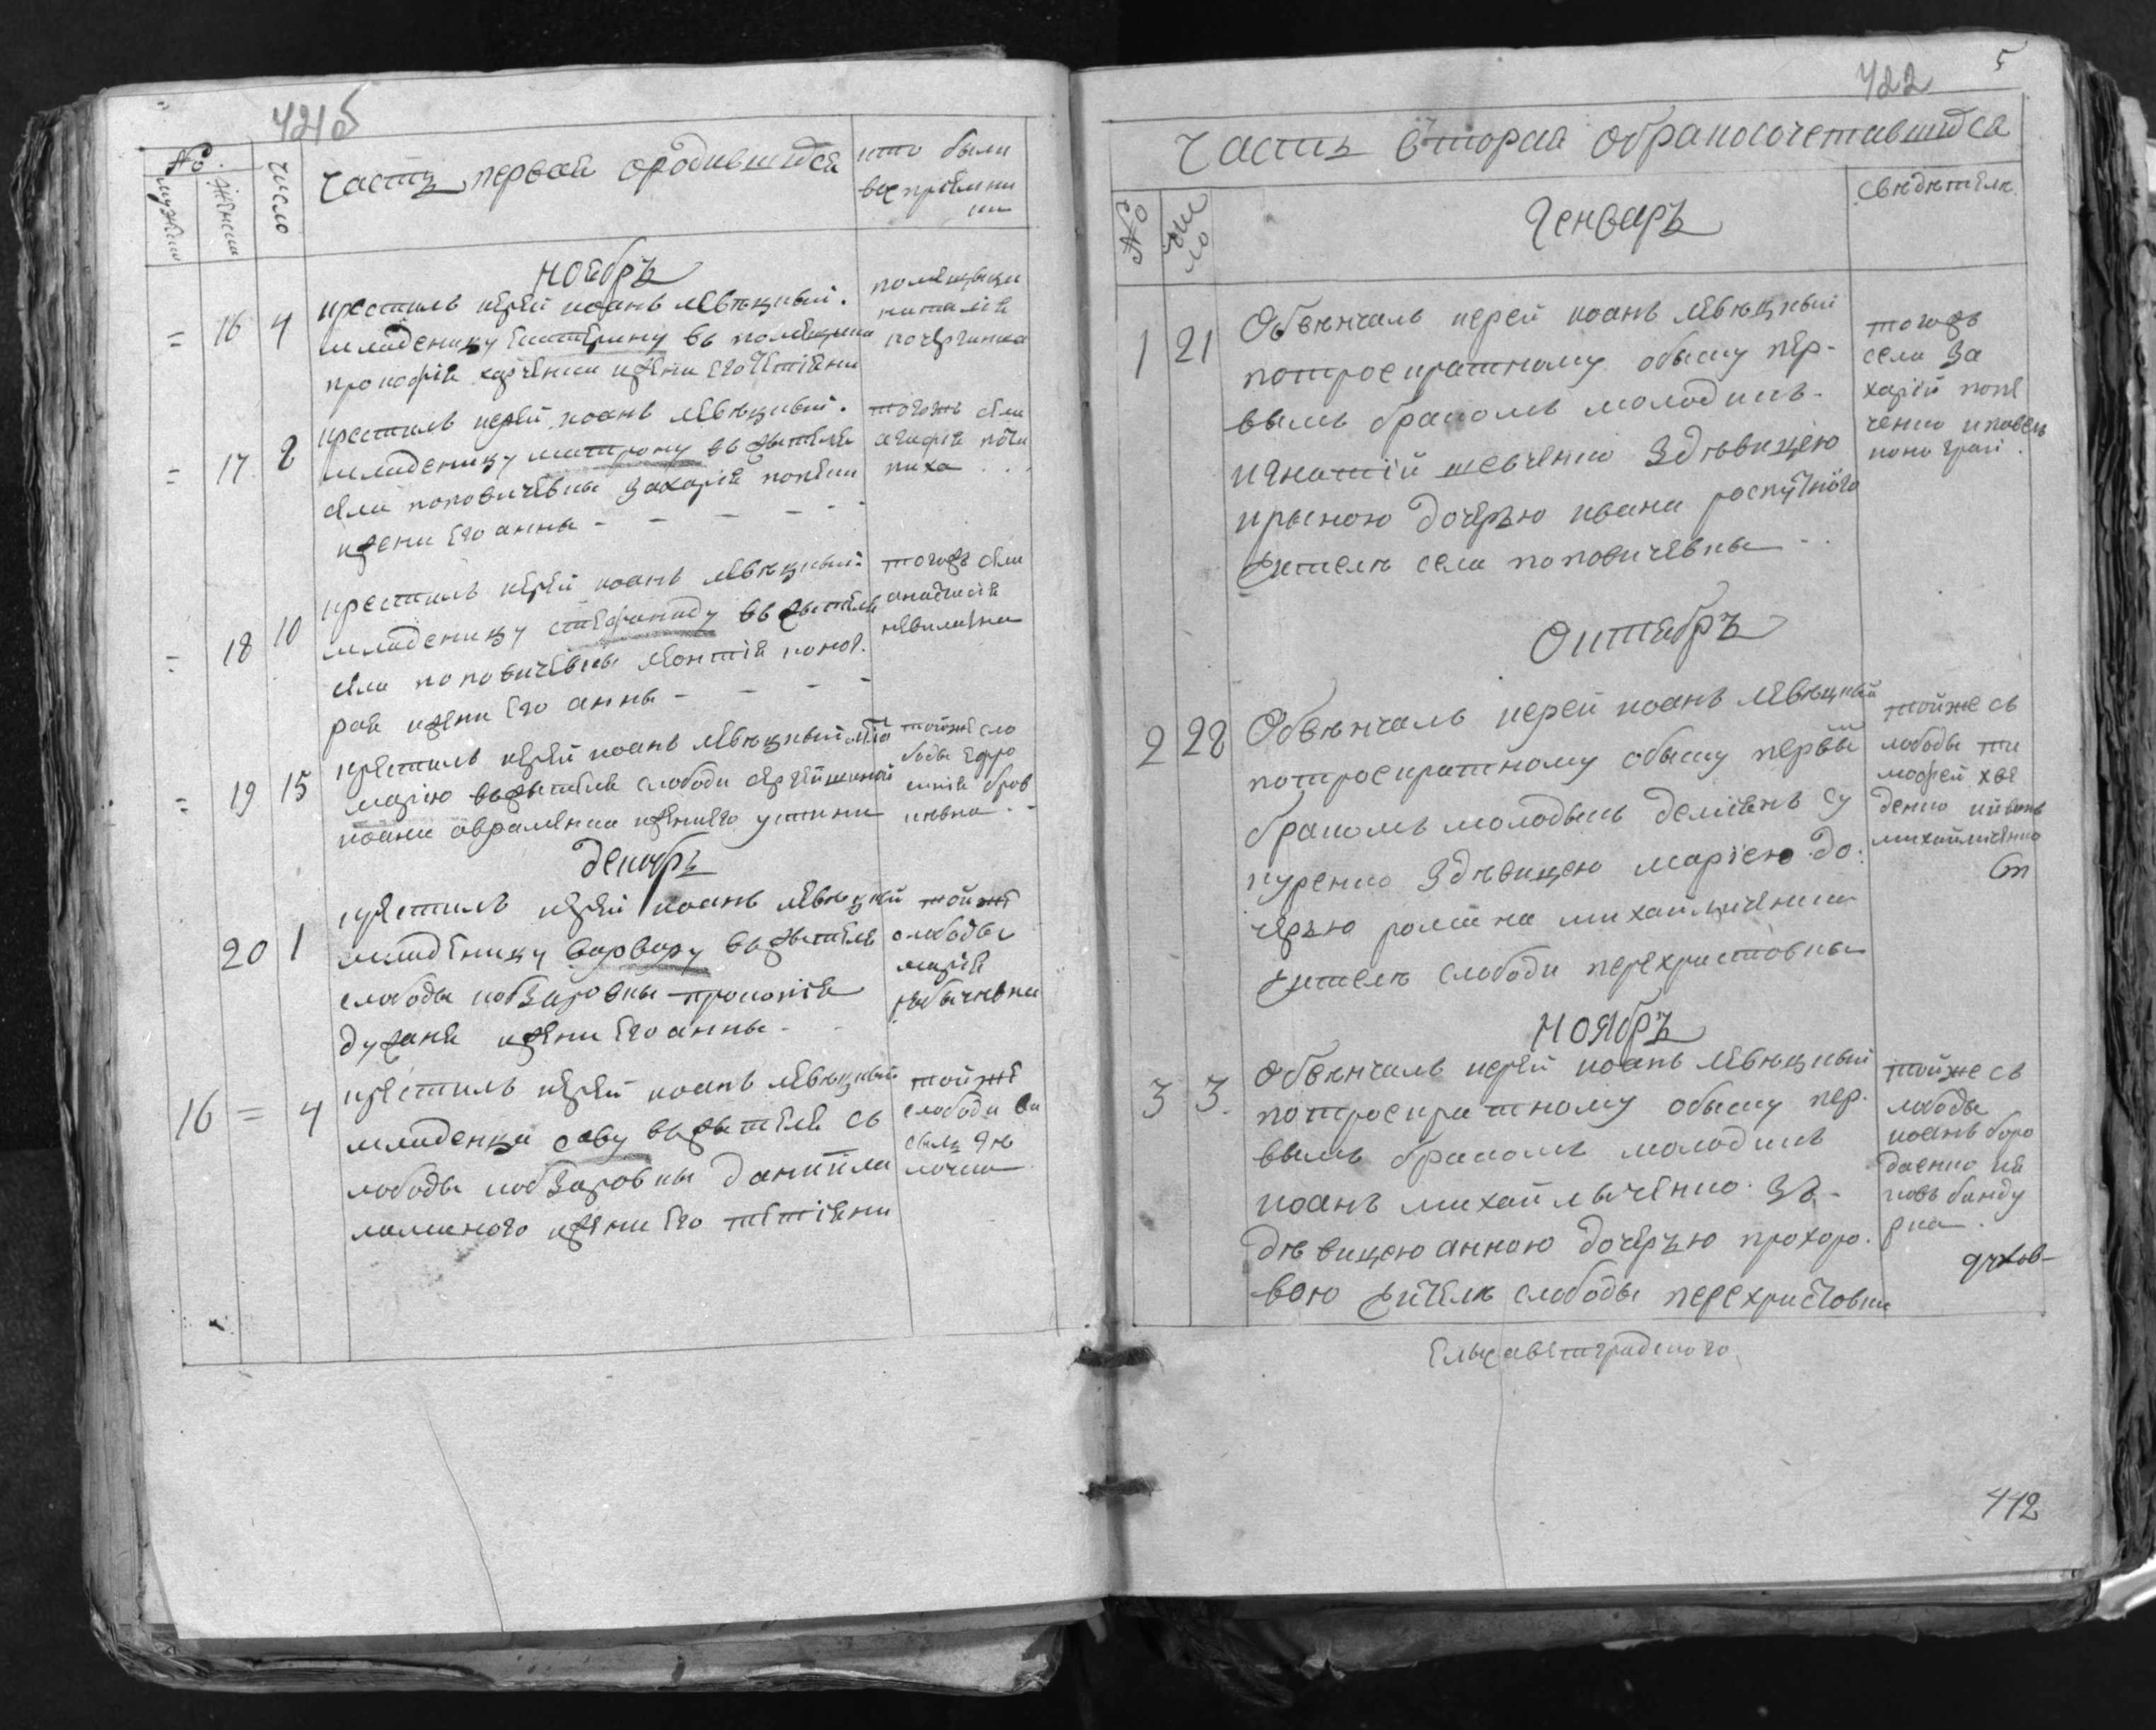 421б
№
мужеск
женск
число
часть первая о родившихся
кто были
восприемни
ки
ноябрь
= 16 4
крестилъ иерей иоанъ левѣцкий.
младеницу екатерину въ помещика
прокофія харченка и жени его тетіяни
помещица
наталія
= 17 8
крестилъ иерей иоанъ левѣцкий.
младеницу матрону въ жителя
села поповичевки захарія
и жени его анны
тогожъ села
агафія
пиха
= 18 10
крестилъ иерей иоанъ левѣцкий
младеницу стефаниду въ жителя
села поповичевки леонтія
рая и жени его анны
тогожъ села
анастасія
= 19 15
крестилъ иерей иоанъ левѣцкий мла
марію въ жителя слободи сергейшиной
иоана авраменка и жени его устини
тойже сло
боды ефро
синія бров
ковна
декабрь
20 1
крестилъ иерей иоанъ левѣцкий
младеницу варвару въ жителя
слободы кобзаровки прокопія
дужаня и жени его анны
тойже
слободы
марія
16 = 4
крестилъ иерей иоанъ левѣцкий
младенца саву въ жителя сь
лободы кобзаровки даниила
и жени его тетіяни
тойже
слободи ва
силь
422
5
часть вторая о бракосочетавшихся
№
чис
ло
генварь
свѣдѣтелѣ
1 21
Обвѣнчалъ иерей иоанъ левѣцкий
по троекратному обыску пер-
вымъ бракомъ молодикъ
игнатій шевченко з дѣвицею
ириною дочерью ивана роспутнего
жителѣ села поповичевки
тогожъ
села за
харій
ченко и
Октябрь
2 28
Обвѣнчалъ иерей иоанъ левѣцкий
по троекратному обыску первы
бракомъ молодыкъ деміянъ су
куренко з дѣвицею маріею до
черью романа михайличенка
жителѣ слободи перехристовки
тойже сь
лободы ти
мофей хве
денко и иванъ
михайличенко
Ноябрь
3 3.
Обвѣнчалъ иерей иоанъ левѣцкий
по троекратному обыску пер.
вымъ бракомъ молодикъ
иоанъ михайличенко зъ
дѣвицею анною дочерью прохоро.
вою жителѣ слободы перехристовки
тойже сь
лободы
иоанъ боро
даенко
ковъ банду
рка
духов-
Елысаветградского
412